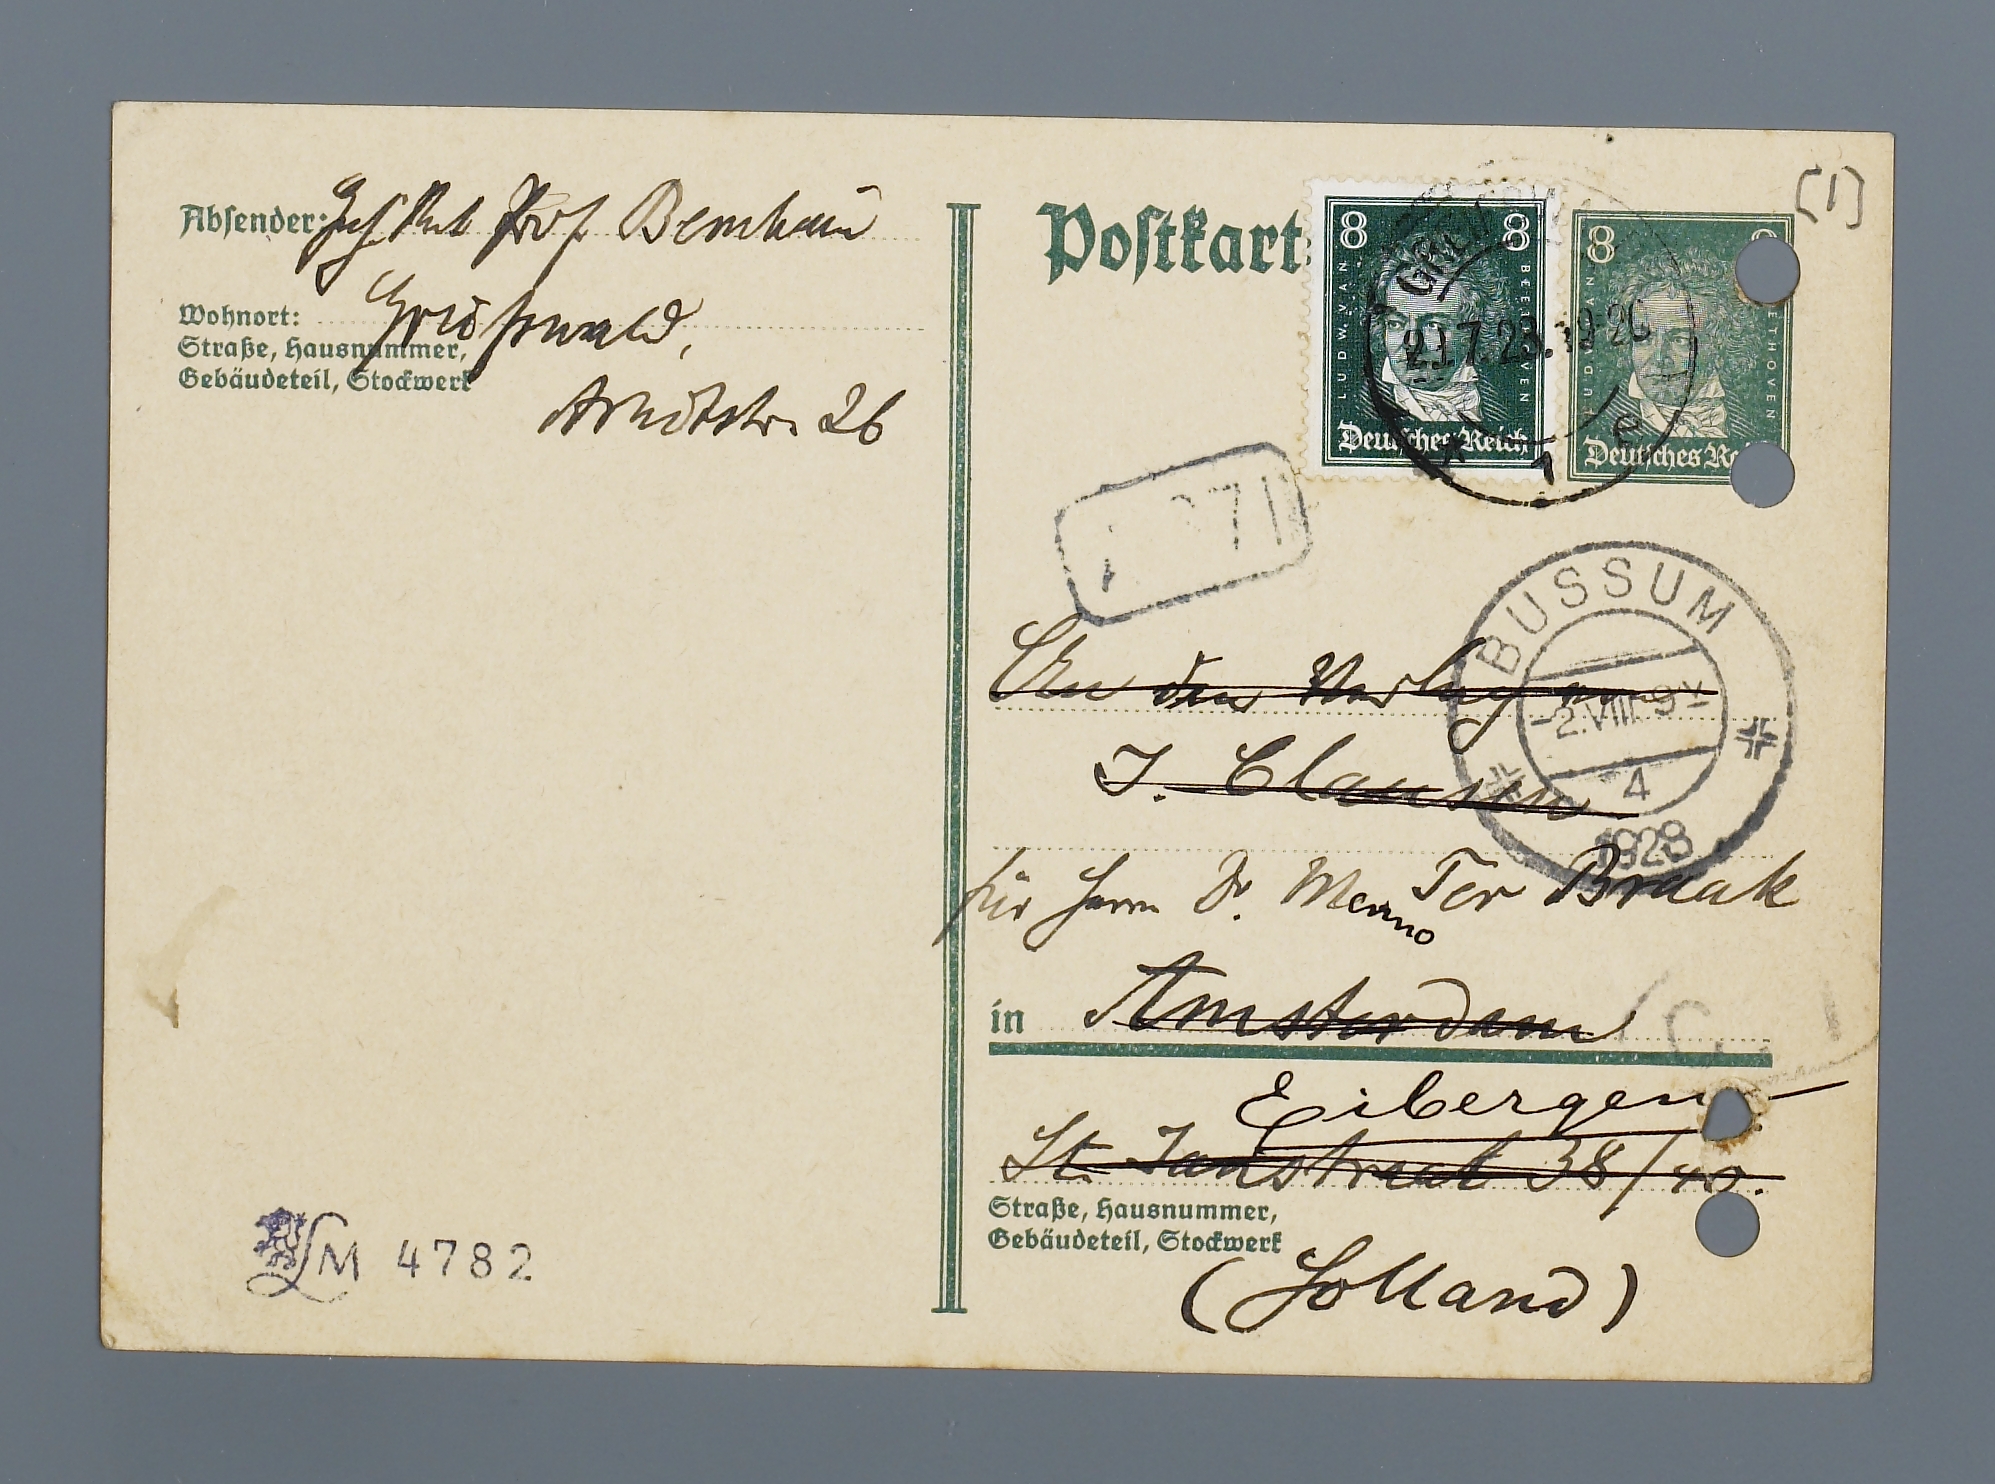 Absender: Geh. Rat Prof. Bernheim
Wohnort: Greifswald,
Straße, Hausnummer,
Gebäudeteil, Stockwerk
Arndtstr. 26
Postkart
8 8
LUDWIG VAN BEETHOVEN
Deutsches Reich
8
Deutsches Re
7.28.18-20
1 e
[1]
BUSSUM
2.VIII.
4
1928
An den Verlag von
J. Clausen
für Herrn Dr. Menno Ter Braak
in Amsterdam
Eibergen
St. Janstraat 38/40.
Straße, Hausnummer,
Gebäudeteil, Stockwerk
(Holland)
LM 4782